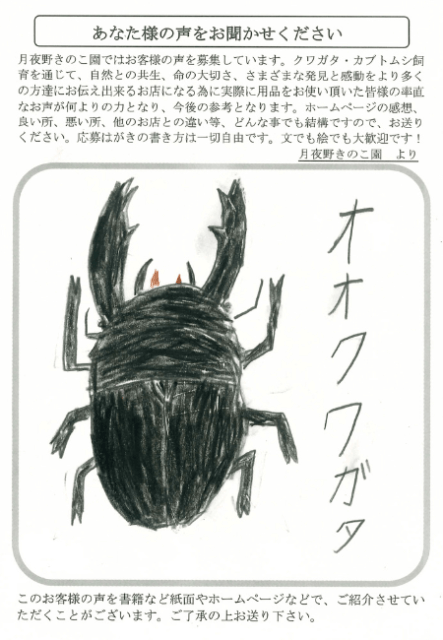 あなた様の声をお聞かせください
月夜野きのこ園ではお客様の声を募集しています。クワガタ・カブトムシ飼
育を通じて、自然との共生、命の大切さ、さまざまな発見と感動をより多く
の方達にお伝え出来るお店になる為に実際に用品をお使い頂いた皆様の率直
なお声が何よりの力となり、今後の参考となります。ホームページの感想、
良い所、悪い所、他のお店との違い等、どんな事でも結構ですので、お送り
ください。応募はがきの書き方は一切自由です。文でも絵でも大歓迎です！
月夜野きのこ園　より
オオクワガタ
このお客様の声を書籍など紙面やホームページなどで、ご紹介させてい
ただくことがございます。ご了承の上お送り下さい。